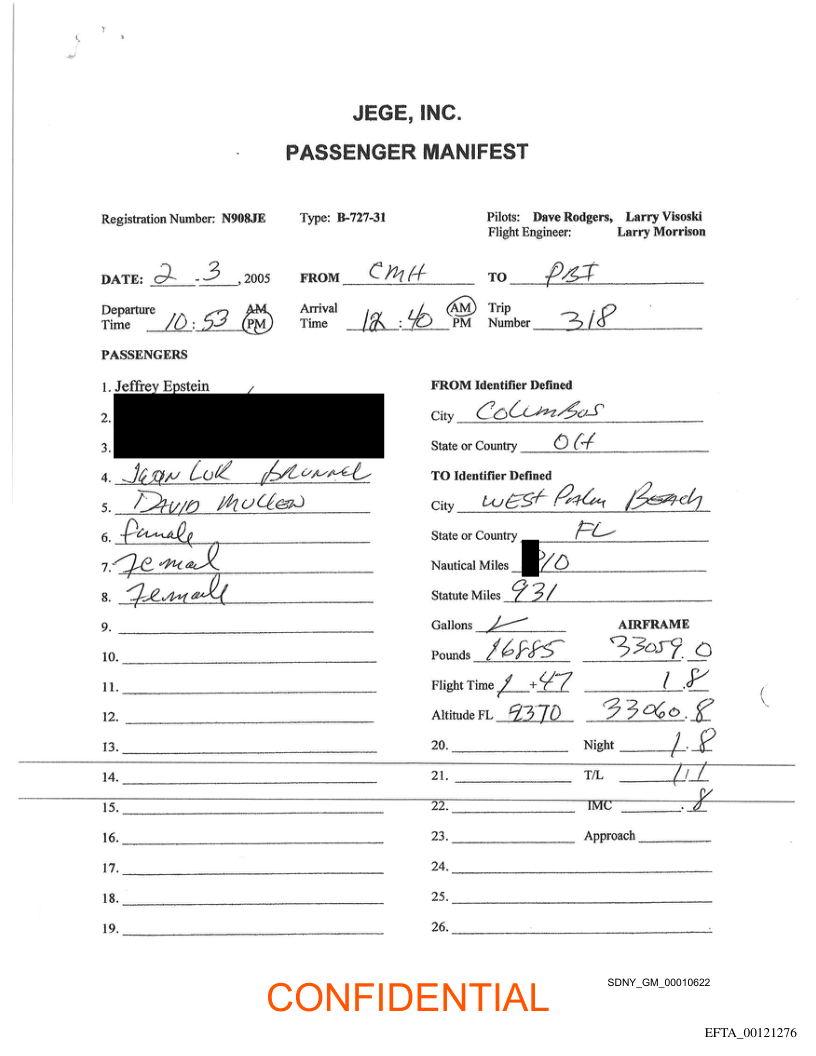 JEGE, INC.
PASSENGER MANIFEST
Registration Number: N908JE Type: B-727-31 Pilots: Dave Rodgers, Larry Visoski
Flight Engineer: Larry Morrison
DATE: 2 - 3, 2005 FROM CMH TO PBI
Departure Time 10:53 AM PM Arrival Time 12:40 AM PM Trip Number 318
PASSENGERS
1. Jeffrey Epstein
2.
3.
4. JEAN LUK BRUNNEL
5. DAVID MULLEN
6. female
7. Femail
8. Femaile
9.
10.
11.
12.
13.
14.
15.
16.
17.
18.
19.
FROM Identifier Defined
City Columbos
State or Country OH
TO Identifier Defined
City WEST Palm BEACH
State or Country FL
Nautical Miles 10
Statute Miles 931
Gallons AIRFRAME
Pounds 16885 33059.0
Flight Time 1+47 1.8
Altitude FL 9370 33060.8
20. Night 1.8
21. T/L 1/1
22. IMC .8
23. Approach
24.
25.
26.
SDNY_GM_00010622
CONFIDENTIAL
EFTA_00121276